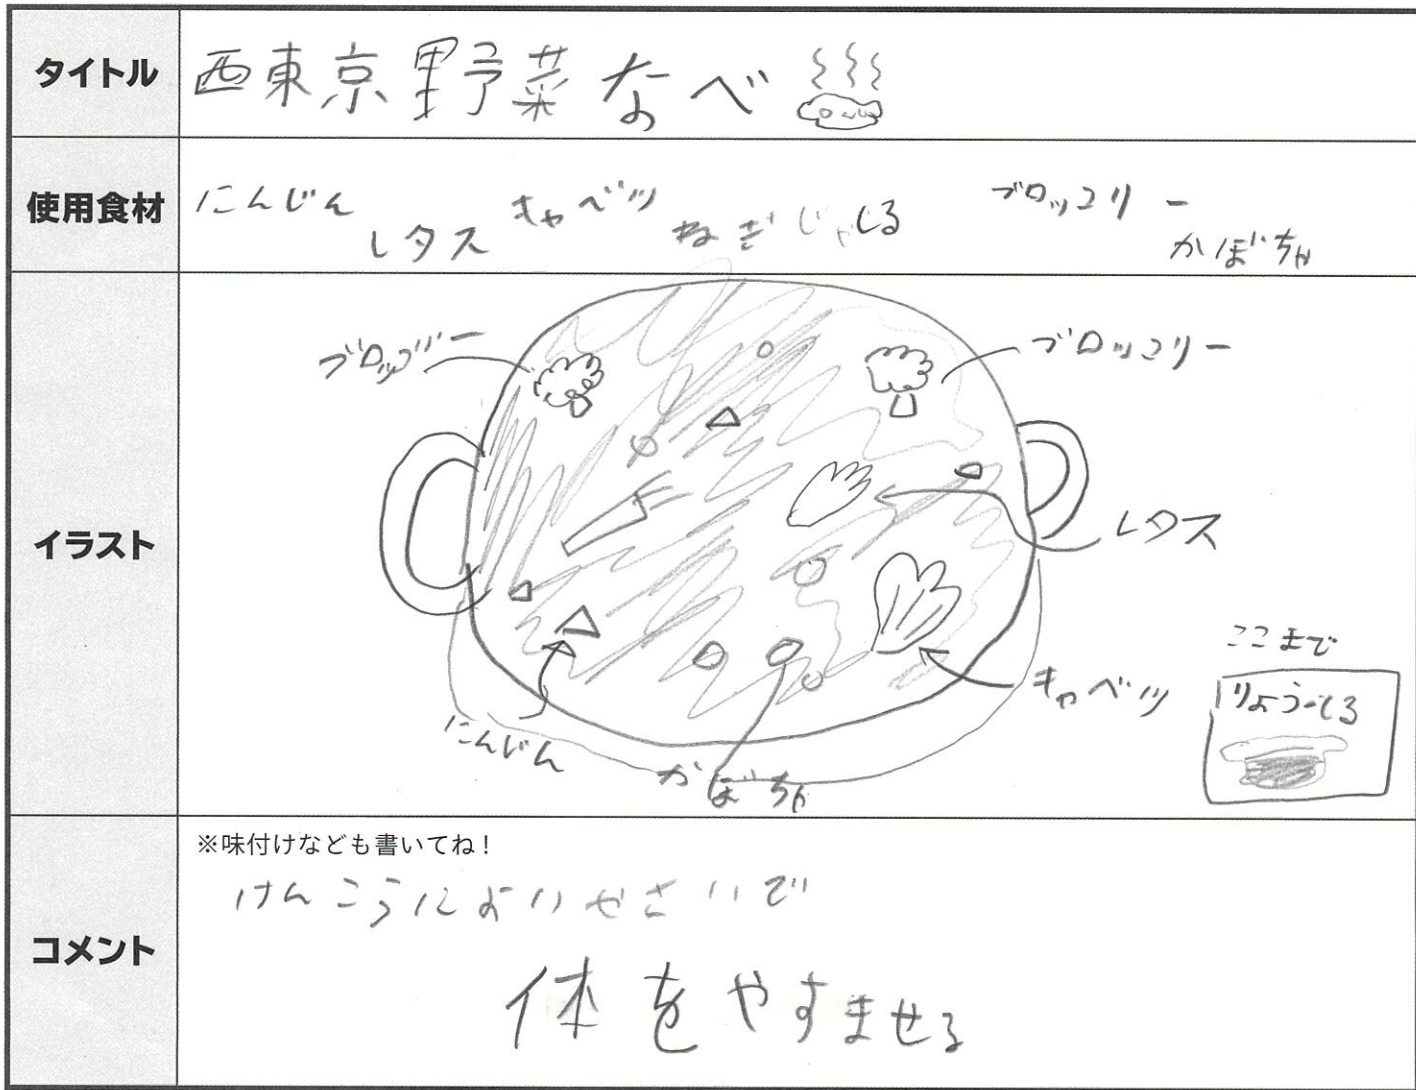 タイトル
西東京野菜なべ
使用食材
にんじん
レタス
キャベツ
ねぎ
ブロッコリー
かぼちゃ
イラスト
ブロッコリー
ブロッコリー
レタス
キャベツ
にんじん
かぼちゃ
ここまで
コメント
※味付けなども書いてね！
けんこうによいやさいで
体をやすませる